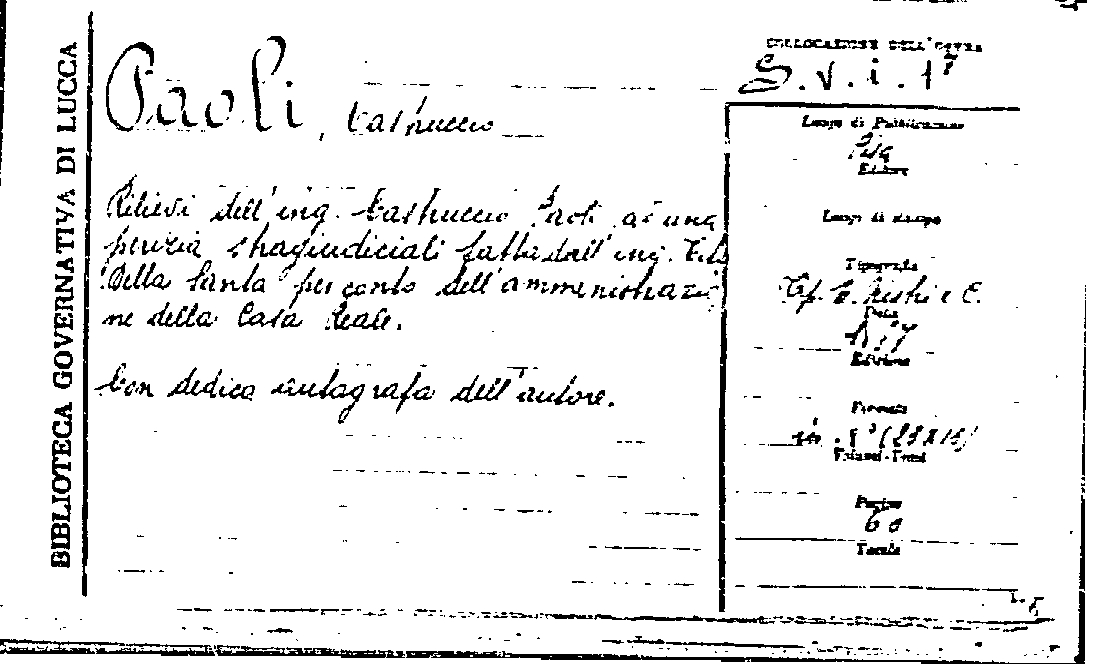 BIBLIOTECA GOVERNATIVA DI LUCCA
Paoli, Castruccio
Rilievi dell'ing. Castruccio Paoli ad una
perizia stragiudiciali fatta dall'ing.
Della Santa per conto dell'amministrazio
ne della Casa Reale.
Con dedica autografa dell'autore.
COLLOCAZIONE DELL'OPERA
S.v.i.17
Luogo di Pubblicazione
Pisa
Editore
Luogo di stampa
Tipografia
Tip. e C.
Data
Edizione
Formato
in 8° (23x16)
Volumi-Tomi
Pagine
60
Tavole